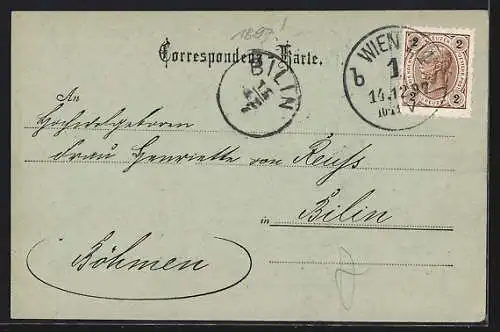 1897!
Correspondenz-Karte.
WIEN
1.
14.12.97
b
2 2
2 2
BILIN
15
12
An
Hochwolgeboren
Frau Henriette von Reuss
in Bilin
Böhmen